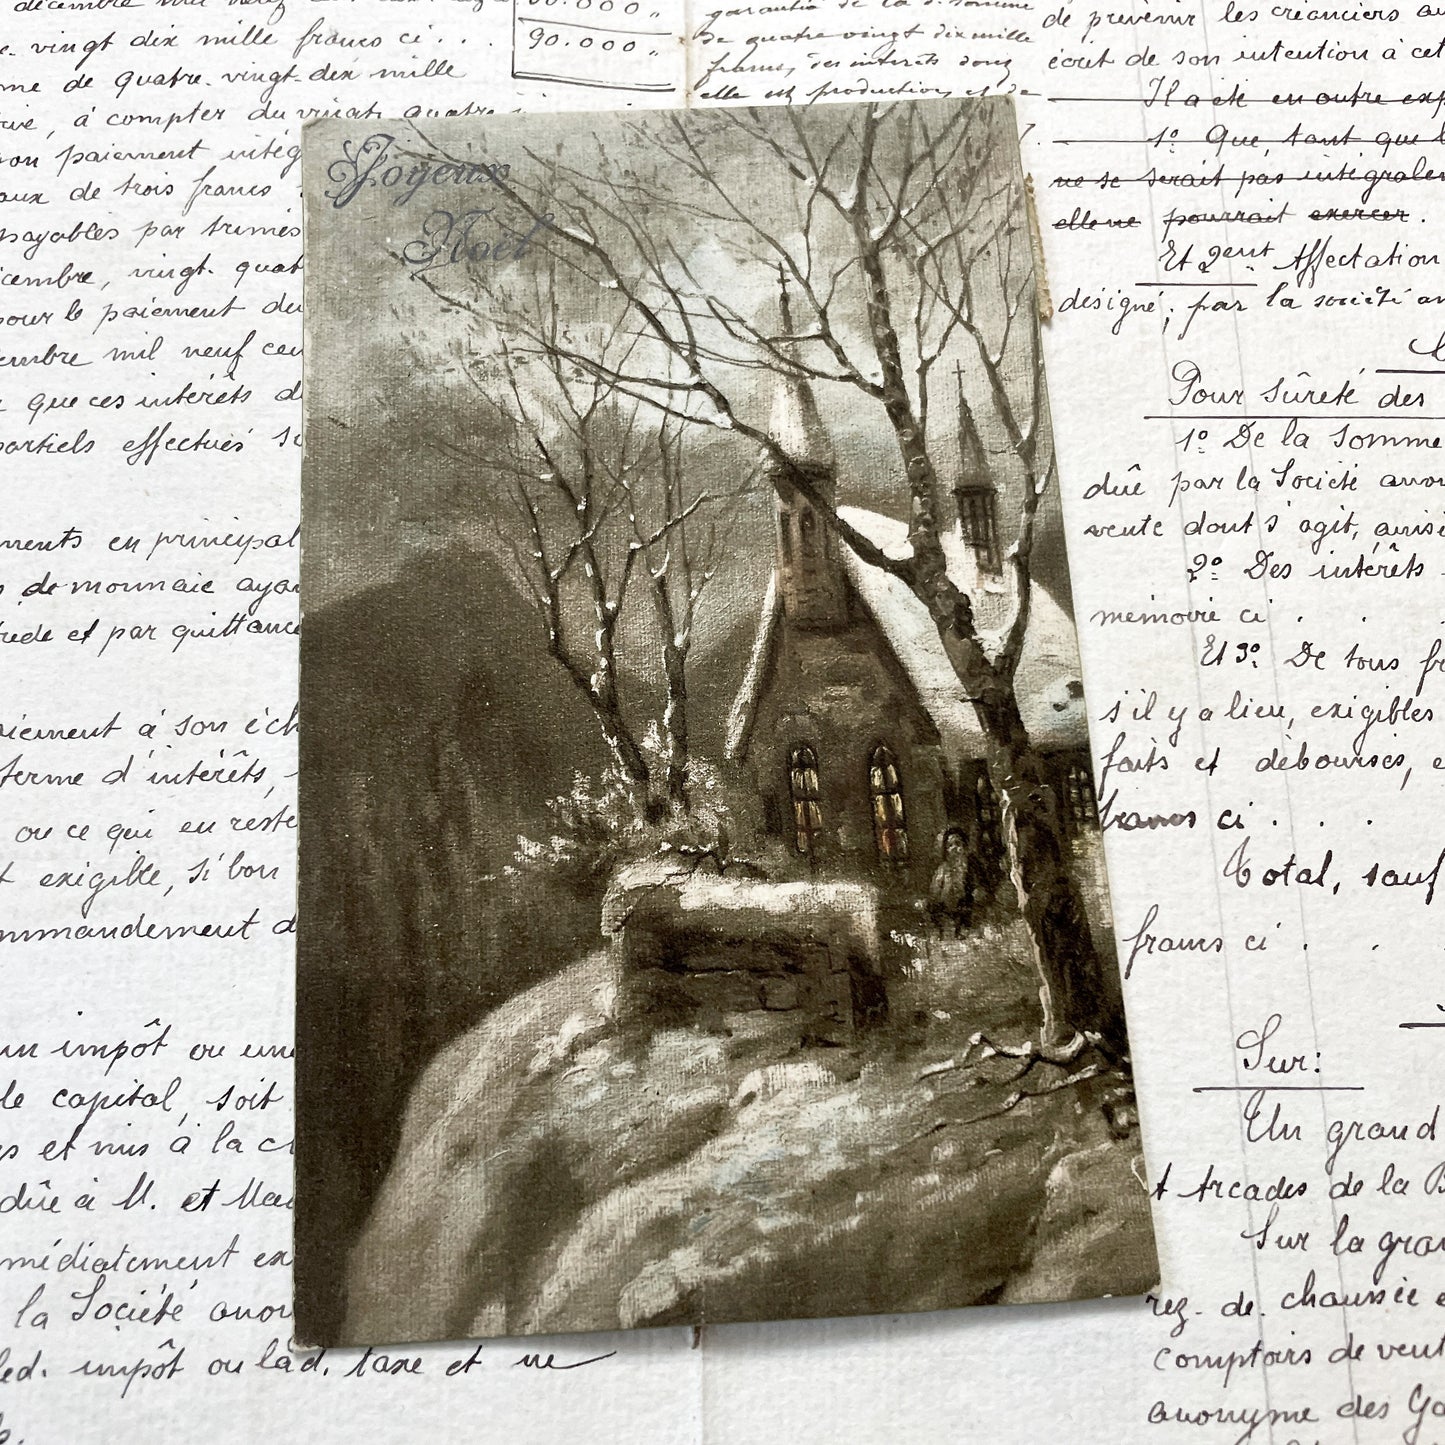 Joyeux
Noël
décembre mil
90.000 „
vingt dix mille francs ci . . .
90.000 „
de quatre-vingt-dix mille
à compter du vingt quatre
paiement intég
aux de trois francs
payables par trimes
cembre, vingt-quat
pour le paiement du
embre mil neuf cen
que ces intérêts d
partiels effectués
ments en principal
de monnaie ayan
et par quittance
aiement à son éch
terme d'intérêts,
ou ce qui en reste
exigible, si bon
mmandement d
un impôt ou une
le capital, soit
et mis à la c
dûe à M. et Mad
médiatement ex
la Société anon
led. impôt ou lad. taxe et ne
garantie de la d. somme
de quatre vingt dix mille
francs, des intérêts dont
elle est production et de
de prévenir les créanciers
écrit de son intention à cet
Il a été en outre exp
1º Que, tant que
ne se serait pas intégralem
elle ne pourrait exercer.
Et 2ent Affectation
désigné; par la société an
Pour sûreté des
1º De la somme
dûe par la Société anon
vente dont s'agit, ainsi
2º Des intérêts
mémoire ci . . .
Et 3º De tous fr
s'il y a lieu, exigibles
faits et déboursés,
francs ci . . .
Total, sauf
francs ci . .
Sur:
Un grand
Arcades de la B
Sur la gran
rez-de-chaussée
comptoirs de vent
anonyme des Ga